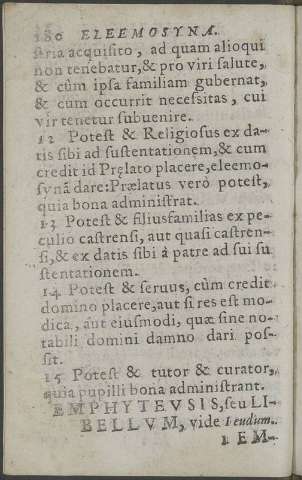 180 ELEEMOSYNA.
stria acquisito, ad quam alioqui
non tenebatur, & pro viri salute,
& cùm ipsa familiam gubernat,
& cùm occurrit necessitas, cui
vir tenetur subuenire.
12 Potest & Religiosus ex da-
tis sibi ad sustentationem, & cum
credit id Pręlato placere, eleemo-
synã dare: Prælatus verò potest,
quia bona administrat.
13 Potest & filiusfamilias ex pe-
culio castrensi, aut quasi castren-
si, & ex datis sibi à patre ad sui su
stentationem.
14 Potest & seruus, cùm credit
domino placere, aut si res est mo-
dica, aut eiusmodi, quæ sine no-
tabili domini damno dari pos-
sit.
15 Potest & tutor & curator,
quia pupilli bona administrant.
EMPHYTEVSIS, seu LI-
BELLVM, vide Feudum.
1 EM-